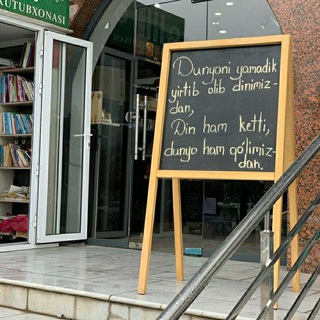 KUTUBXONASI
Dunyoni yamadik
yirtib olib dinimiz-
dan,
Din ham ketti,
dunyo ham qo'limiz-
dan.